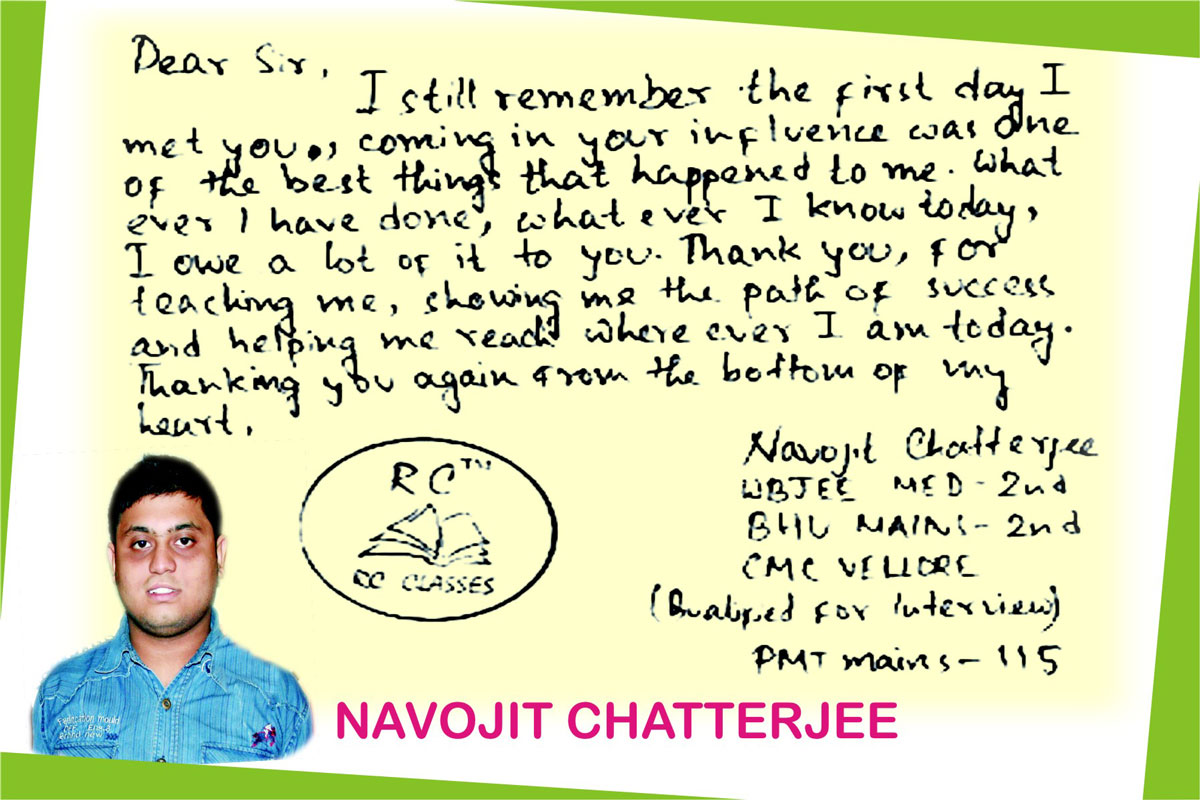 Dear Sir,
I still remember the first day I
met you., coming in your influence was one
of the best things that happened to me. What
ever I have done, what ever I know today,
I owe a lot of it to you. Thank you, for
teaching me, showing me the path of success
and helping me reach where ever I am today.
Thanking you again from the bottom of my
heart.
Navojit Chatterjee
WBJEE MED - 2nd
BHU MAINS - 2nd
CMC VELLORE
(Qualified for interview)
PMT mains - 115
RC™
RC CLASSES
NAVOJIT CHATTERJEE